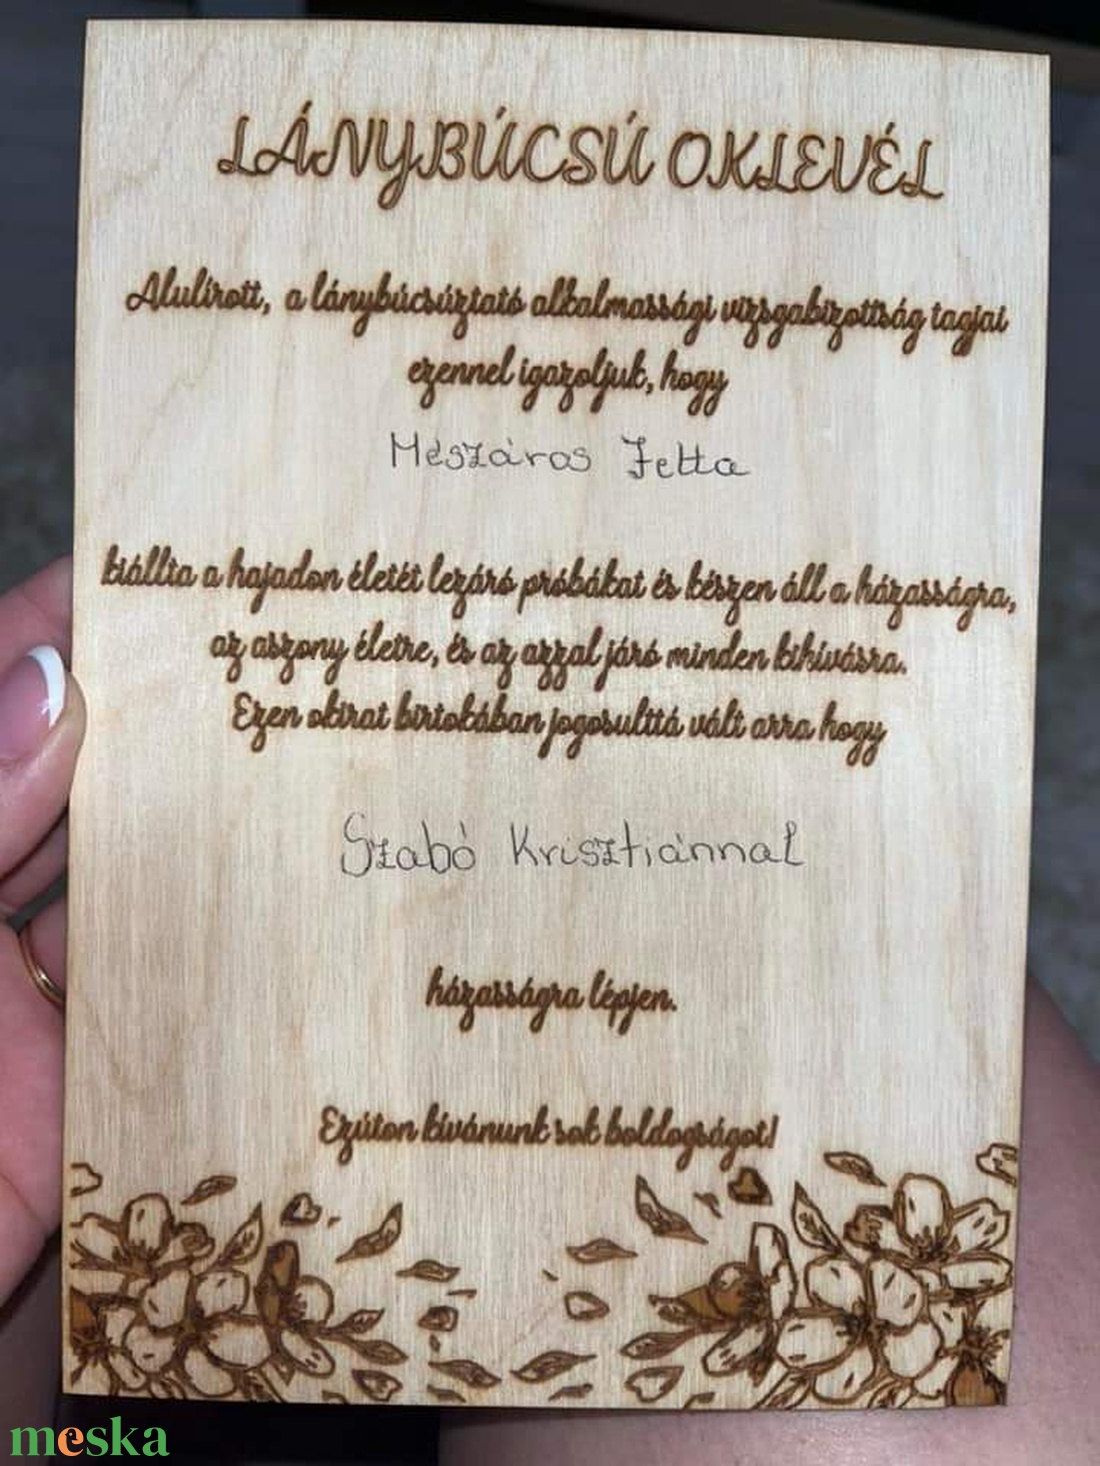 LÁNYBÚCSÚ OKLEVÉL
Alulírott, a lánybúcsúztató alkalmassági vizsgabizottság tagjai
ezennel igazoljuk, hogy
Mészáros Jetta
kiállta a hajadon életét lezáró próbákat és készen áll a házasságra,
az aszony életre, és az azzal járó minden kihívásra.
Ezen okirat birtokában jogosulttá vált arra hogy
Szabó Krisztiánnal
házasságra lépjen.
Ezúton kívánunk sok boldogságot!
meska